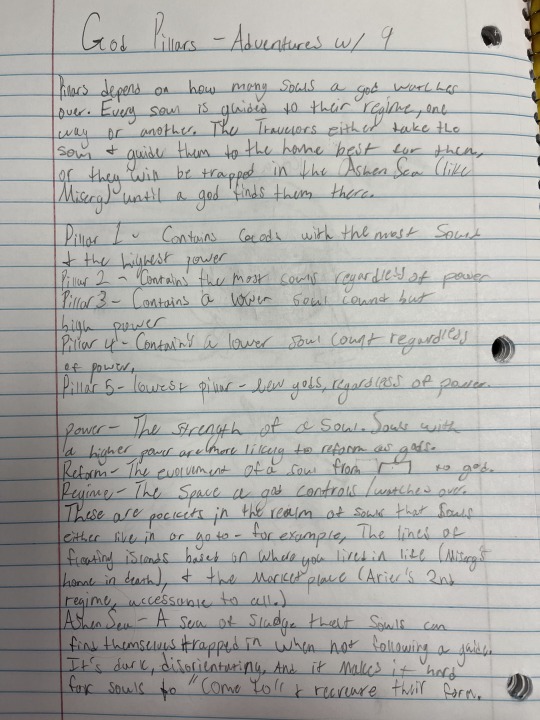 God Pillars - Adventures w/ 9
Pillars depend on how many souls a god watches
over. Every soul is guided to their regime, one
way or another. The Travelors either take the
soul & guide them to the home best for them,
or they will be trapped in the Ashen Sea (like
Misery) until a god finds them there.
Pillar 1 - Contains Gods with the most Souls
& the highest power
Pillar 2 - Contains the most souls regardless of power
Pillar 3 - Contains a lower soul count but
high power
Pillar 4 - Contains a lower soul count regardless
of power.
Pillar 5 - lowest pillar - new gods, regardless of power.
Power - The strength of a soul. Souls with
a higher power are more likely to reform as gods.
Reform - The evolvment of a soul from to god.
Regime - The space a god controls/watches over.
These are pockets in the realm of souls that souls
either live in or go to - for example, The lines of
floating islands based on where you lived in life (Misery's
home in death), & the Marketplace (Arier's 2nd
regime, accessable to all.)
Ashen Sea - A sea of sludge that souls can
find themselves trapped in when not following a guide.
It's dark, disorientating, and it makes it hard
for souls to "Come to" & recreate their form.